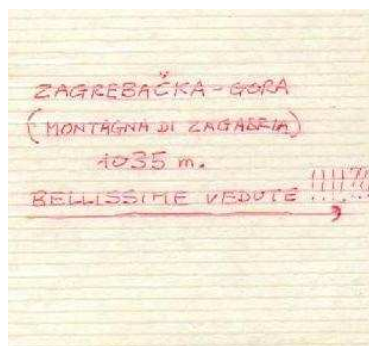 ZAGREBAČKA-GORA
(MONTAGNA DI ZAGABRIA)
1035 m.
BELLISSIME VEDUTE !!!!???